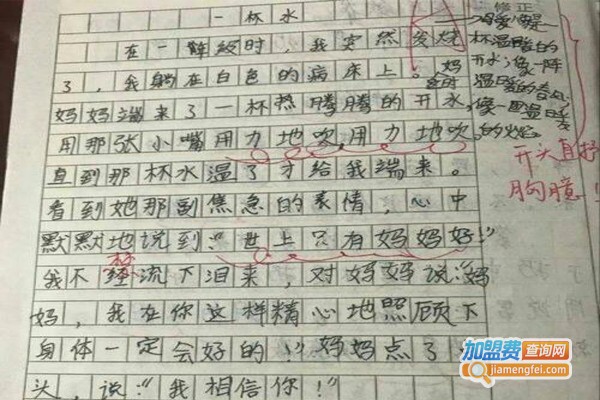 一杯水
修正
在一年级时，我突然发烧
了，我躺在白色的病床上。妈
妈妈端来了一杯热腾腾的开水，
用那张小嘴用力地吹，用力地吹。
直到那杯水温了才给我端来。
看到她那副焦急的表情，心中
默默地说到：“世上只有妈妈好！”
我不禁流下泪来，对妈妈说：“妈
妈，我在你这样精心地照顾下
身体一定会好的！”妈妈点了
头，说：“我相信你！”
杯温暖的
开水；像一阵
温暖的春风；
像一团温暖
的火焰。
开头直抒
胸臆！
加盟费查询网
jiamengfei.com